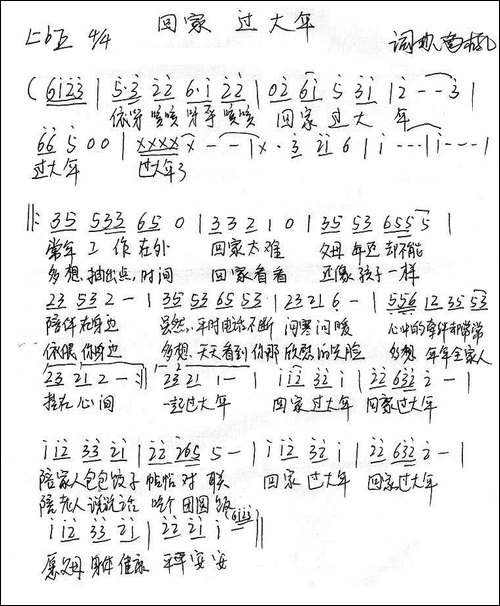 回家过大年
1=bE 4/4 词曲
( 6123 | 5·3 22 6·1 22 | 02 61 5 31 | 2 - - 3 |
依呀嗨嗨 呀乎嗨嗨 回家 过大 年
66 5 0 0 | XXXX X - - | X · 3 21 6 | 1 - - - | 1 - - - |
过大年 过大年了
||: 35 533 65 0 | 332 1 0 | 35 53 655 5 |
常年工作在外 回家太难 父母年迈却不能
多想抽出点时间 回家看看 还像孩子一样
23 532 - | 35 53 65 53 | 23 21 6 - | 556 12 35 53 |
陪伴在身边 虽然平时电话不断 问寒问暖 心中的牵伴却常常
依偎你身边 多想天天看到你那欣慰的笑脸 多想年年全家人
23 21 2 - :|| 23 21 1 - | 1 12 32 1 | 22 632 2 - |
挂在心间 一起过大年 回家过大年 回家过大年
1 12 33 21 | 22 265 5 - | 1 12 32 1 | 22 632 2 - |
陪家人包包饺子 帖帖对联 回家过大年 回家过大年
陪老人说说话 吃个团圆饭
1 12 33 21 | 22 21 1 (6123) ||
愿父母身体健康 平平安安